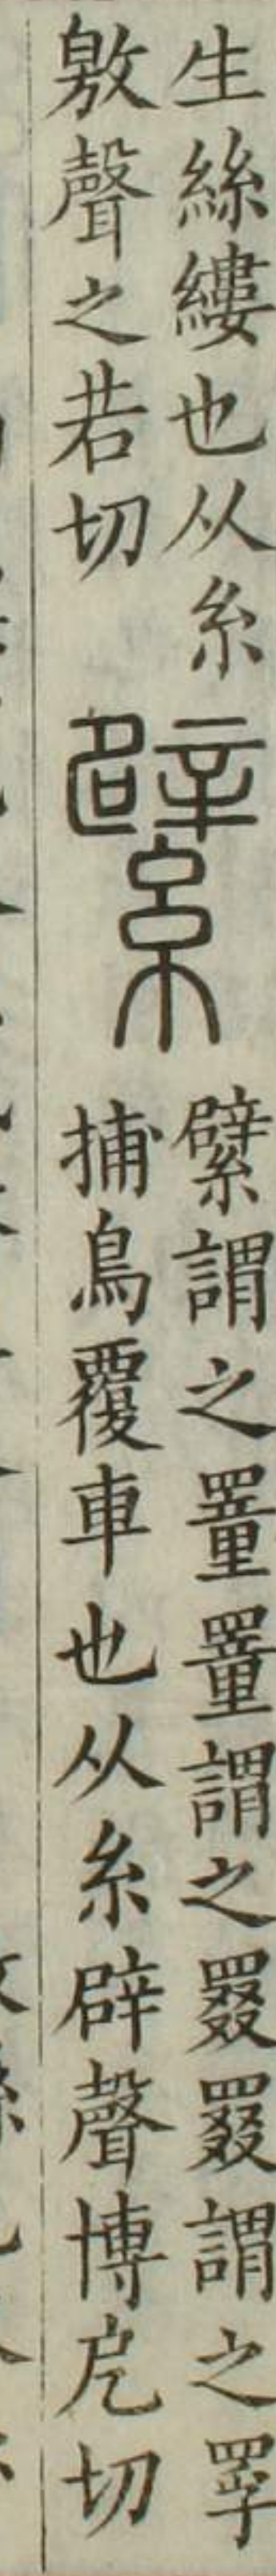 生絲縷也从糸
敫聲之若切
繴
繴謂之罿罿謂之罬罬謂之罦
捕鳥覆車也从糸辟聲博戹切